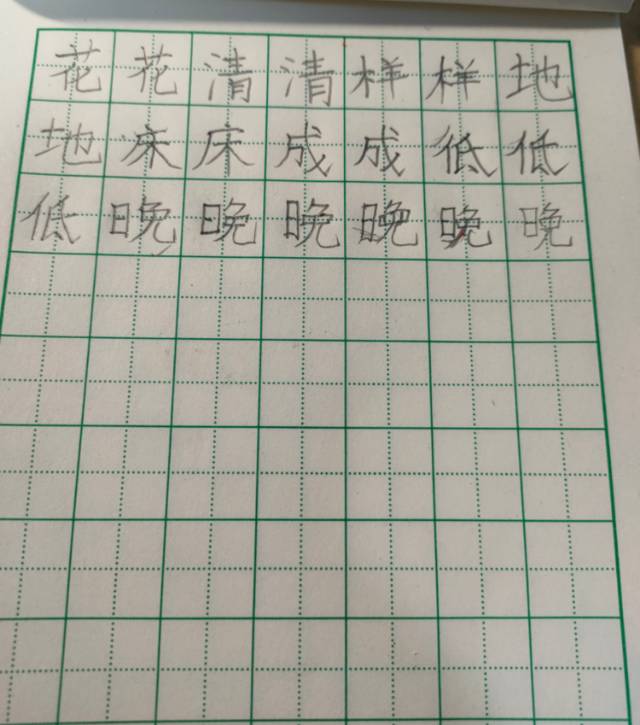 花花清清样样地
地床床成成低低
低晚晚晚晚晚晚